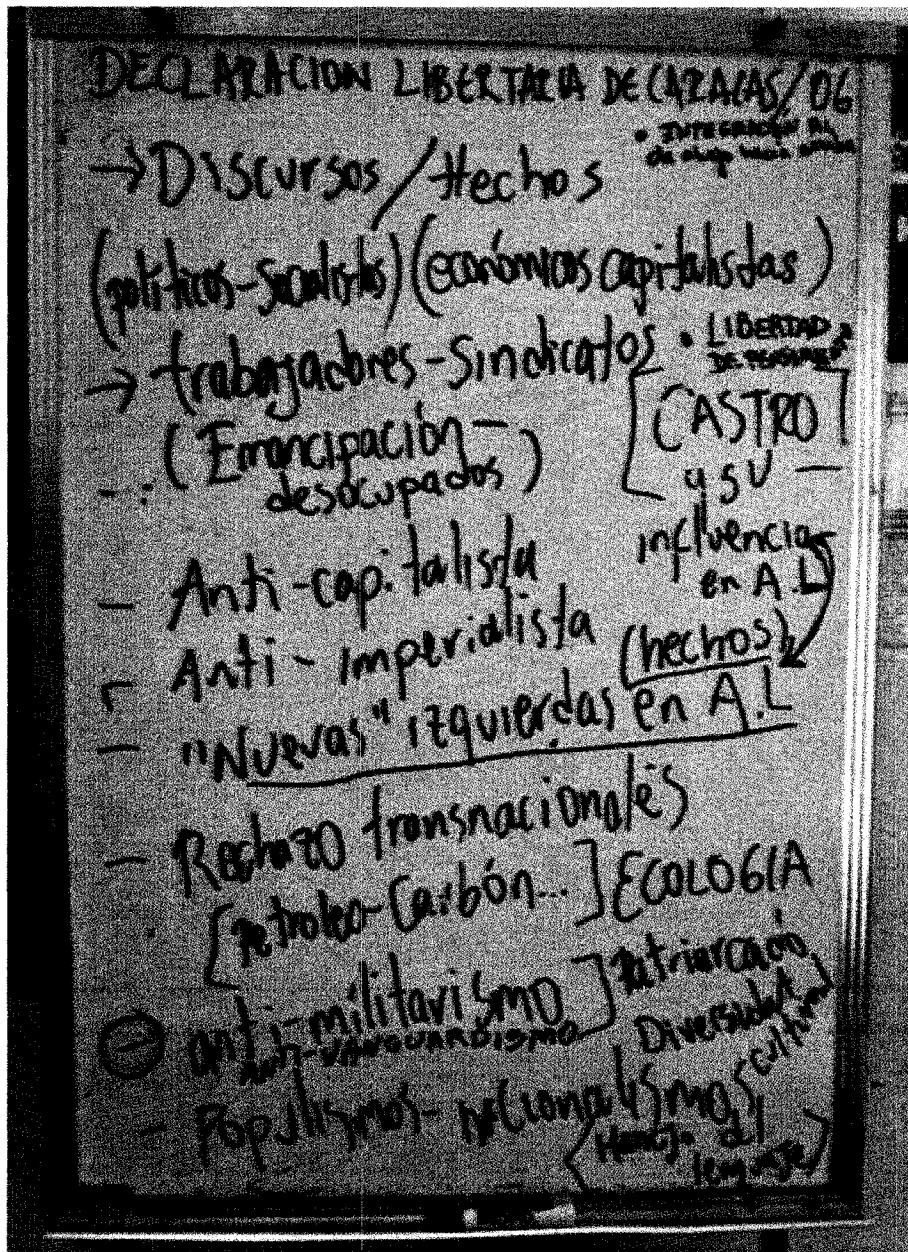 DECLARACION LIBERTARIA DE CARACAS/06
• INTEGRACIÓN AL
de
→ Discursos / Hechos
(políticos-socialistas) (económicos capitalistas)
→ trabajadores-Sindicatos
• LIBERTAD
(Emancipación-
desocupados)
[CASTRO]
y su —
influencia
en A.L
- Anti-capitalista
- Anti-imperialista
(hechos)
- "Nuevas" izquierdas en A.L
- Rechazo transnacionales
[Petroleo-Carbón...] ECOLOGIA
anti-militarismo] Patriarcado
ANTI-VANGUARDISMO
Diversidad
cultural
- Populismos-nacionalismos
(Manejo del
lenguaje)